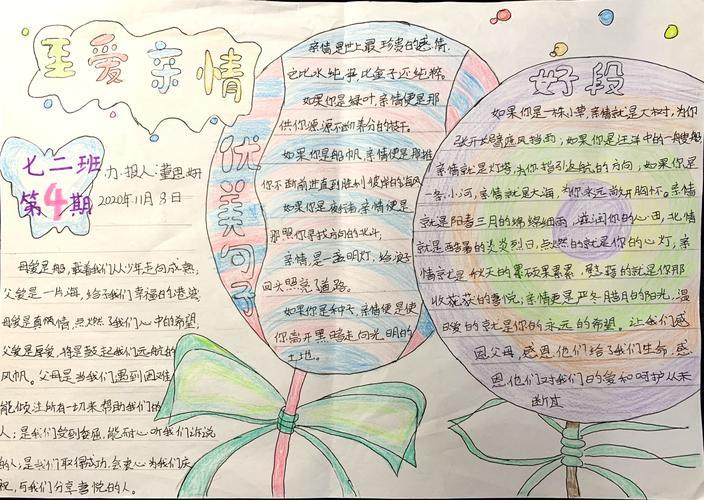 至爱亲情
七二班
第4期
办报人:董思妍
2020年11月8日
母爱是船,载着我们从少年走向成熟;
父爱是一片海,给了我们幸福的港湾
母爱是真情,点燃了我们心中的希望;
父爱是厚爱,将是鼓起我们远航的
风帆。父母是当我们遇到困难
能倾注所有一切来帮助我们的
人;是我们受到委屈,能耐心听我们诉说
的人;是我们取得成功,会衷心为我们庆
祝,与我们分享喜悦的人。
优美句子
亲情是世上最珍贵的感情,
它比水纯净,比金子还纯粹。
如果你是绿叶,亲情便是那
供你源源不断养分的枝干。
如果你是船帆,亲情便是那推
你不断前进直到胜利彼岸的海风
如果你是夜行者,亲情便是
那照你寻找方向的北斗,
亲情,是一盏明灯,给浪子
回头照亮了道路。
如果你是种子,亲情便是使
你离开黑暗走向光明的
土地。
好段
如果你是一株小草,亲情就是大树,为你
张开臂庇风挡雨,如果你是汪洋中的一艘船,
亲情就是灯塔,为你指引返航的方向,如果你是
一条小河,亲情就是大海,为你永远敞开胸怀。亲情
就是阳春三月的绵绵细雨,滋润你的心田,此情
就是酷暑的炎炎烈日,点燃的就是你的心灯,亲
情就是秋天的累硕果累累,愁藉的就是你那
收获获的喜悦,亲情更是严冬腊月的阳光,温
暖的就是你的永远的希望。让我们感
恩父母,感恩他们给了我们生命,感
恩他们对我们的爱和呵护从未
断过